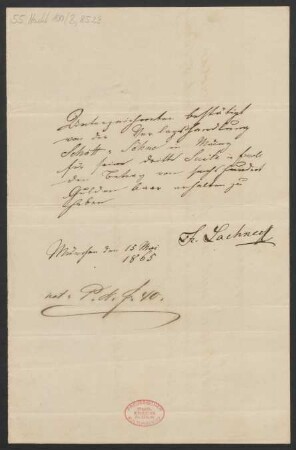 55 Nachl 100/B,
Unterzeichneter bestätigt
von der Verlagshandlung
Schott's Söhne in Mainz
für seine dritte Suite in
den Betrag von sechshundert
Gulden baar erhalten zu
haben
München den 15 Mai
1865
Fr. Lachner
not.